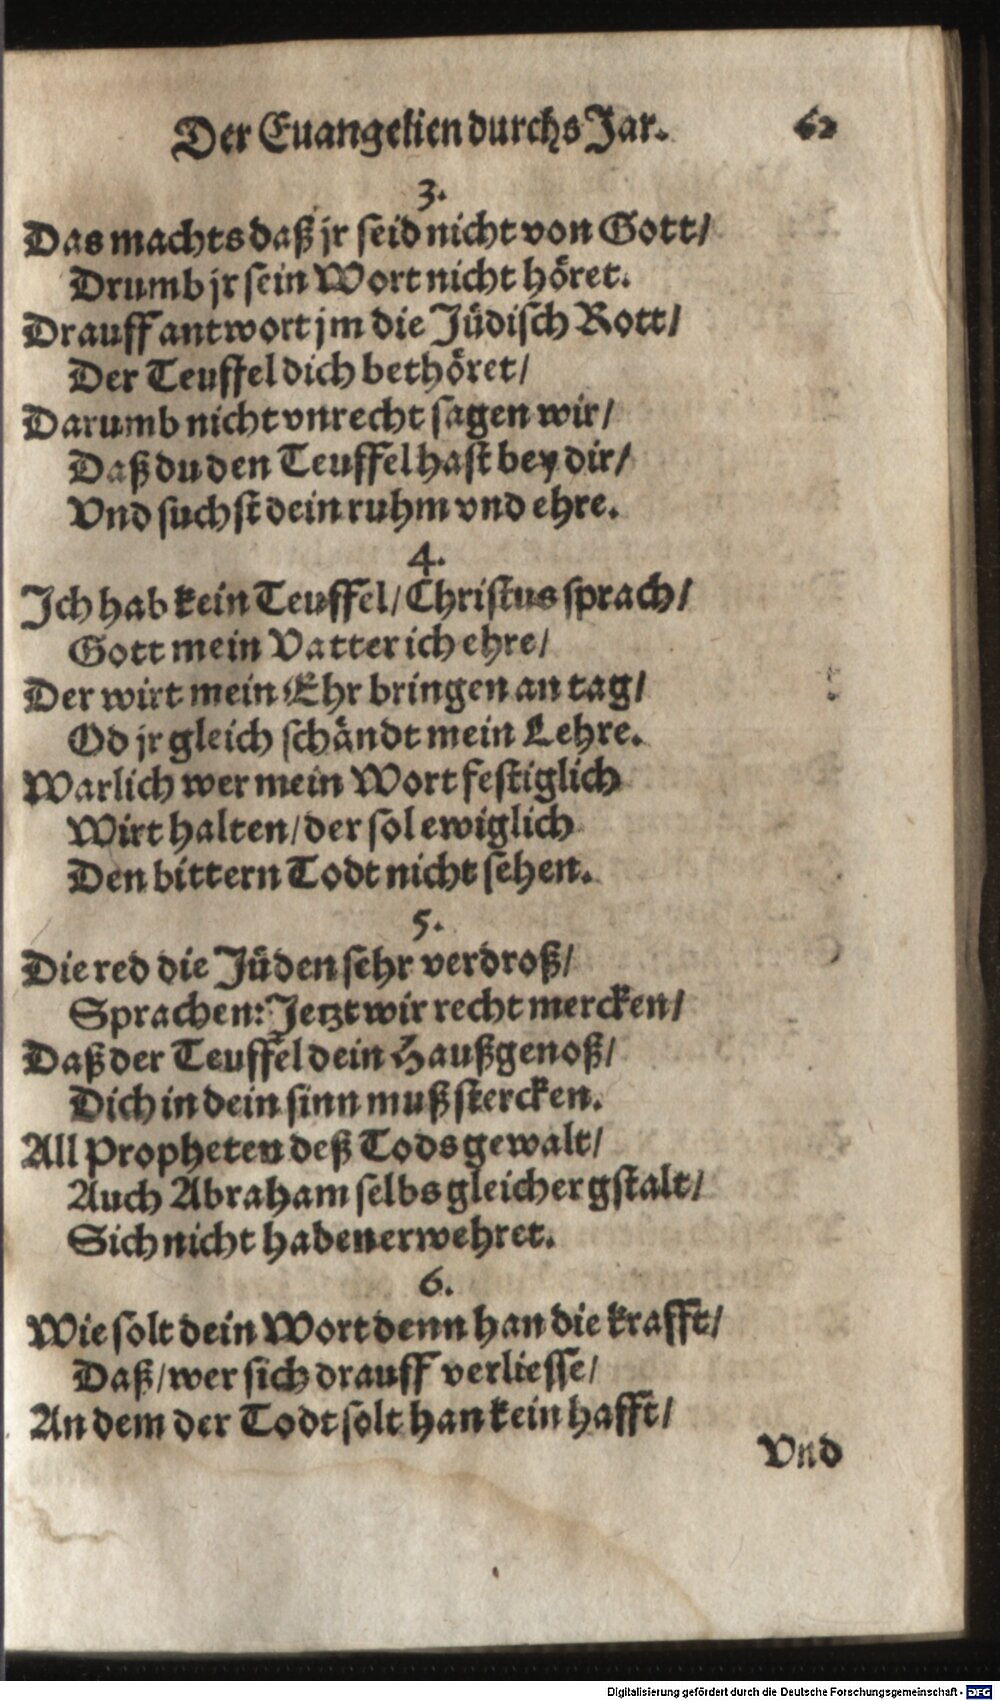 Der Euangelien durchs Jar. 62
3.
Das machts daß jr seid nicht von Gott/
Drumb jr sein Wort nicht höret.
Drauff antwort jm die Jüdisch Rott/
Der Teuffel dich bethöret/
Darumb nicht vnrecht sagen wir/
Daß du den Teuffel hast bey dir/
Vnd suchst dein ruhm vnd ehre.
4.
Ich hab kein Teuffel/ Christus sprach/
Gott mein Vatter ich ehre/
Der wirt mein Ehr bringen an tag/
Ob jr gleich schändt mein Lehre.
Warlich wer mein Wort festiglich
Wirt halten/ der sol ewiglich
Den bittern Todt nicht sehen.
5.
Die red die Jüden sehr verdroß/
Sprachen: Jetzt wir recht mercken/
Daß der Teuffel dein Haußgenoß/
Dich in dein sinn muß stercken.
All Propheten deß Tods gewalt/
Auch Abraham selbs gleicher gstalt/
Sich nicht haben erwehret.
6.
Wie solt dein Wort denn han die krafft/
Daß/ wer sich drauff verliesse/
An dem der Todt solt han kein hafft/
Vnd
Digitalisierung gefördert durch die Deutsche Forschungsgemeinschaft - DFG